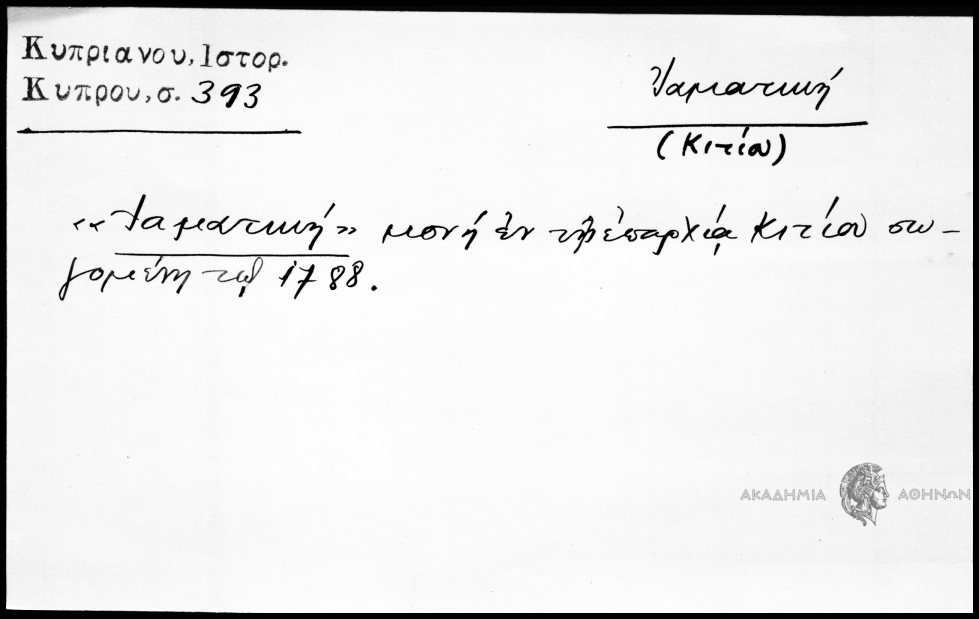 Κυπριανου, Ιστορ.
Κυπρου, σ. 393
Ἰαματική
(Κιτίου)
«Ἰαματική» μονή ἐν τῇ ἐπαρχίᾳ Κιτίου σω-
ζομένη τῷ 1788.
ΑΚΑΔΗΜΙΑ ΑΘΗΝΩΝ